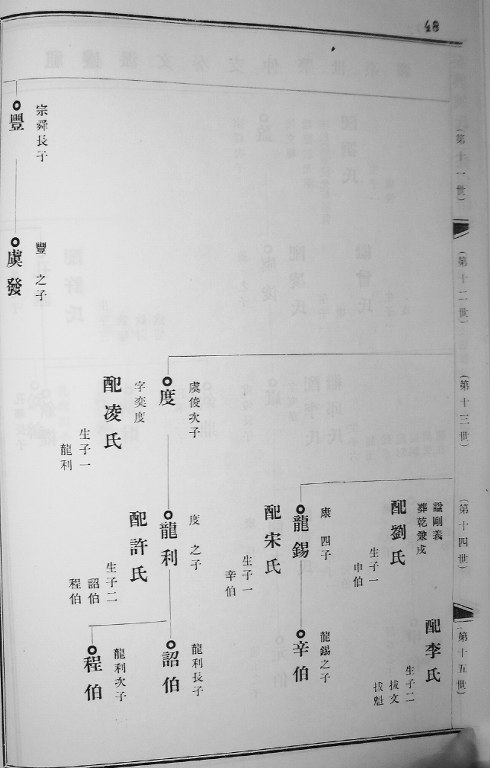 48
(第十一世)
(第十二世)
(第十三世)
(第十四世)
(第十五世)
諡剛義
葬乾兼戌
配劉氏
生子一
申伯
配李氏
生子二
拔文
拔魁
康 四子
龍錫
配宋氏
生子一
辛伯
龍錫之子
辛伯
虞俊次子
度
字奕度
配凌氏
生子一
龍利
度 之子
龍利
配許氏
生子二
詔伯
程伯
龍利長子
詔伯
龍利次子
程伯
宗舜長子
豐
豐 之子
虞發